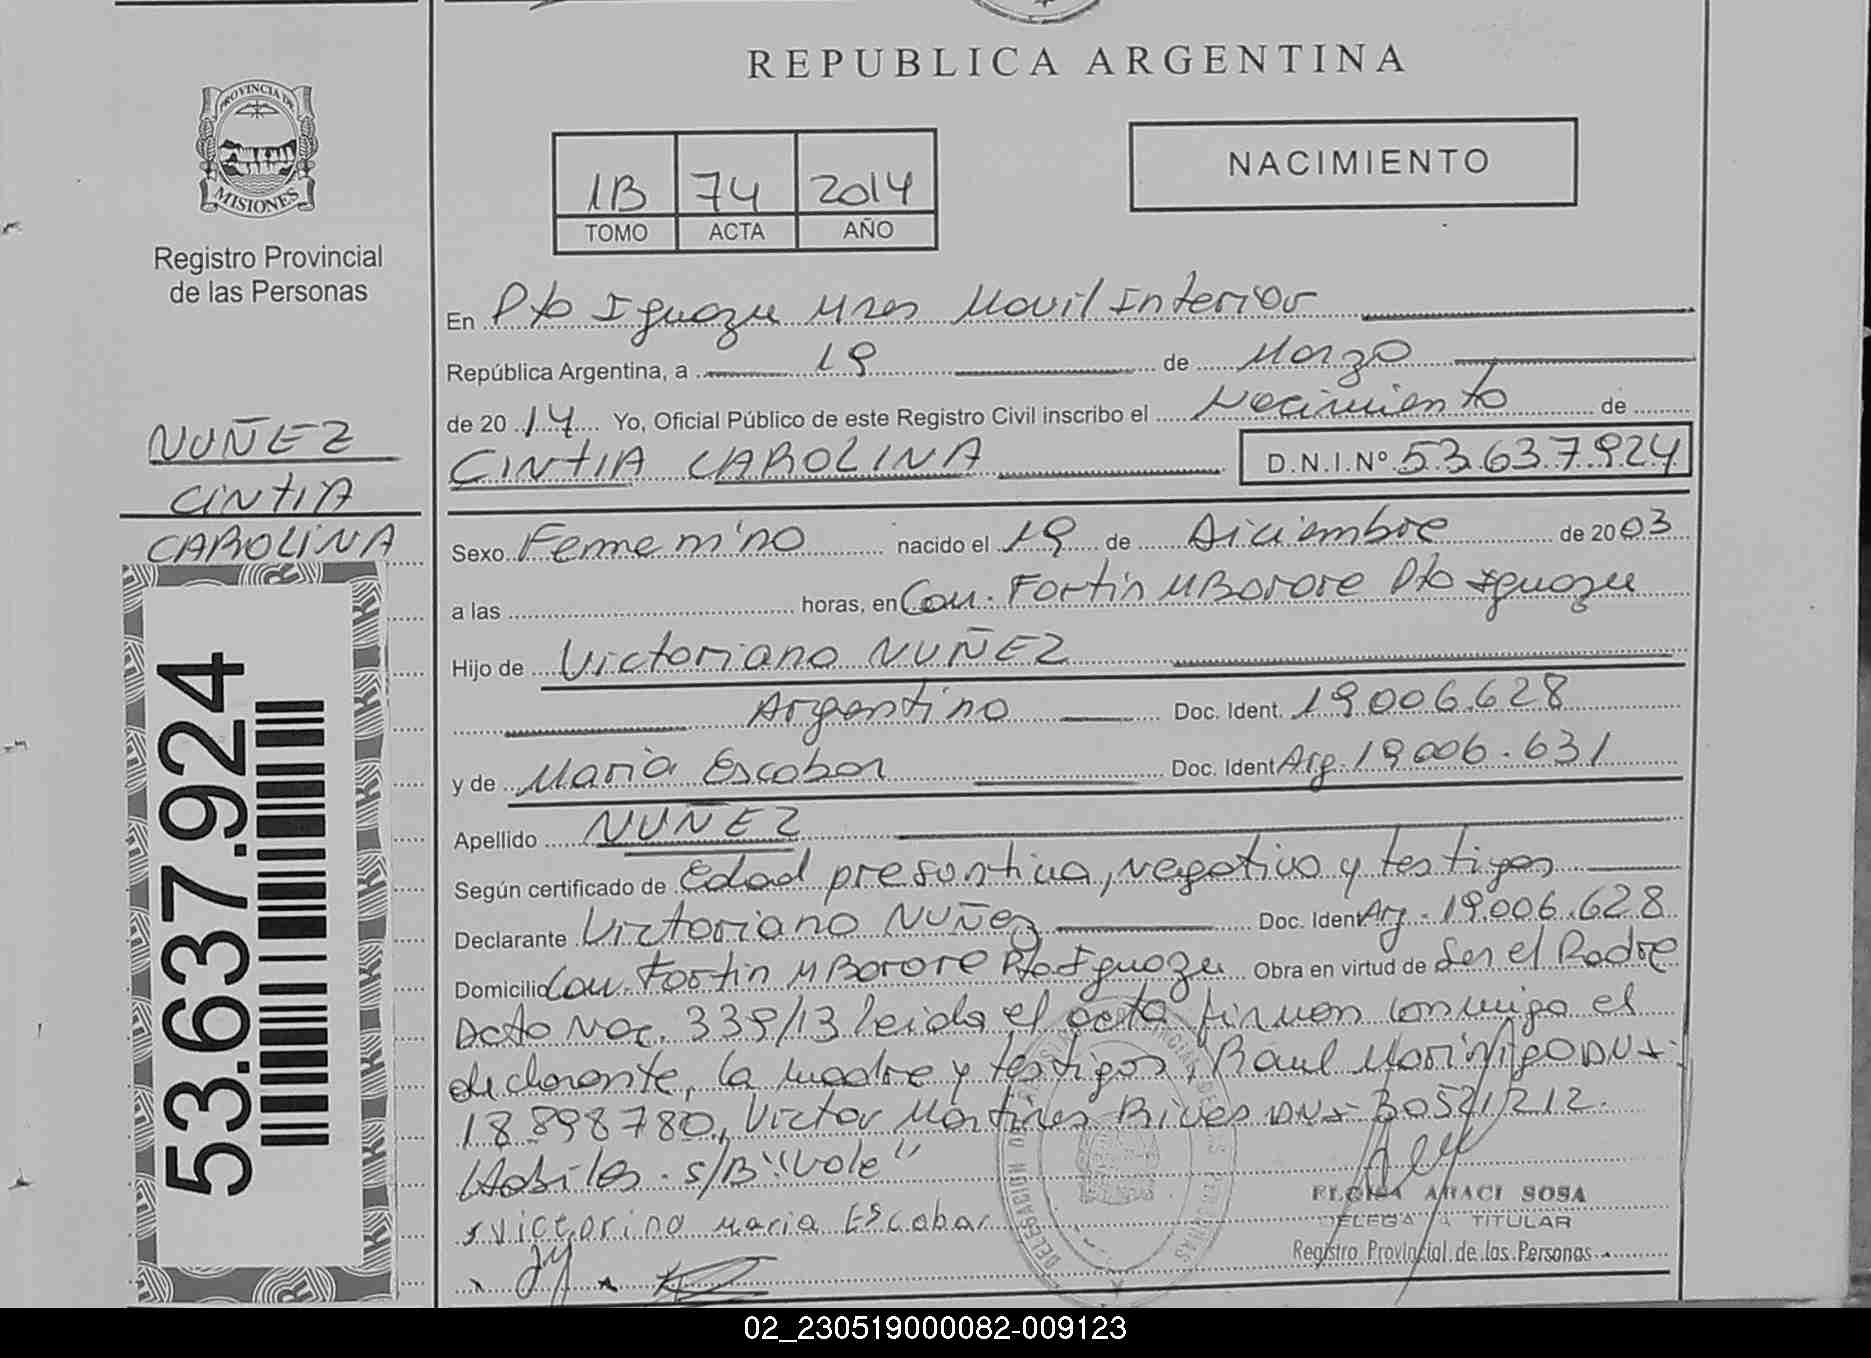 REPUBLICA ARGENTINA
PROVINCIA DE
MISIONES
Registro Provincial
de las Personas
1B 74 2014
TOMO ACTA AÑO
NACIMIENTO
En Pto Iguazu Mnes Movil Interior
República Argentina, a 19 de Marzo
de 2014 Yo, Oficial Público de este Registro Civil inscribo el Nacimiento de
CINTIA CAROLINA D.N.I.Nº 53.637.924
NUÑEZ
CINTIA
CAROLINA
53.637.924
Sexo Femenino nacido el 19 de Diciembre de 2003
a las horas, en Com. Fortin MBorore Pto Iguazu
Hijo de Victoriano NUÑEZ
Argentino Doc. Ident. 19.006.628
y de Maria Escobar Doc. Ident Arg. 19.006.631
Apellido NUÑEZ
Según certificado de Edad presuntiva, negativo y testigos
Declarante Victoriano Nuñez Doc. Ident Arg. 19.006.628
Domicilio Com. Fortin MBorore Pto Iguazu Obra en virtud de Ser el Padre
Acto Nac. 339/13 leida el acta firman conmigo el
declarante, la madre y testigos, Raul Moriñigo DNI:
18.898780, Victor Martines DNI 30521212.
Habiles. S/B "Vale"
Victorino Maria Escobar
ELOISA ARACI SOSA
DELEGADA TITULAR
Registro Provincial de las Personas
02_230519000082-009123